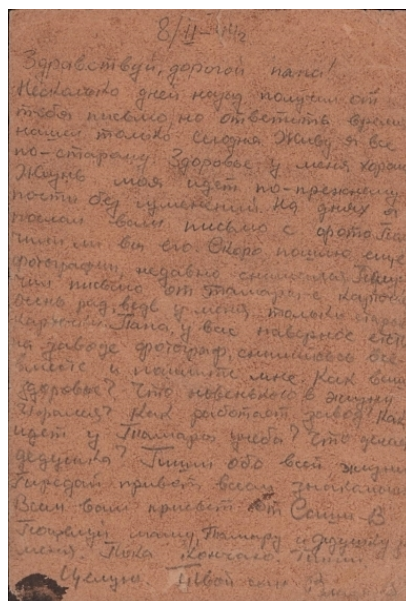 8/II-44г
Здравствуй, дорогой папа!
Несколько дней назад получил от
тебя письмо, но ответить время
нашёл только сегодня. Живу я все
по-старому. Здоровье у меня хорош
Жизнь моя идет по-прежнему
почти без изменений. На днях я
послал вам письмо с фото. Пол
чили ли вы его. Скоро пошлю еще
фотографии, недавно снимался. Полу
чил письмо от Тамары с карточ
очень рад, ведь у меня только
карточки. Папа, у вас наверное есть
на заводе фотограф, снимитесь все
вместе и пошлите мне. Как ваше
здоровье? Что новенького в жизни
Урала? Как работает завод? Как
идет у Тамары учеба? Что делает
дедушка? Пиши обо всей жизни
Передай привет всем знакомым
Всем вам привет от Саши В
Поцелуй маму, Тамару и дедушку за
меня. Пока кончаю. Пиши
Целую. Твой сын